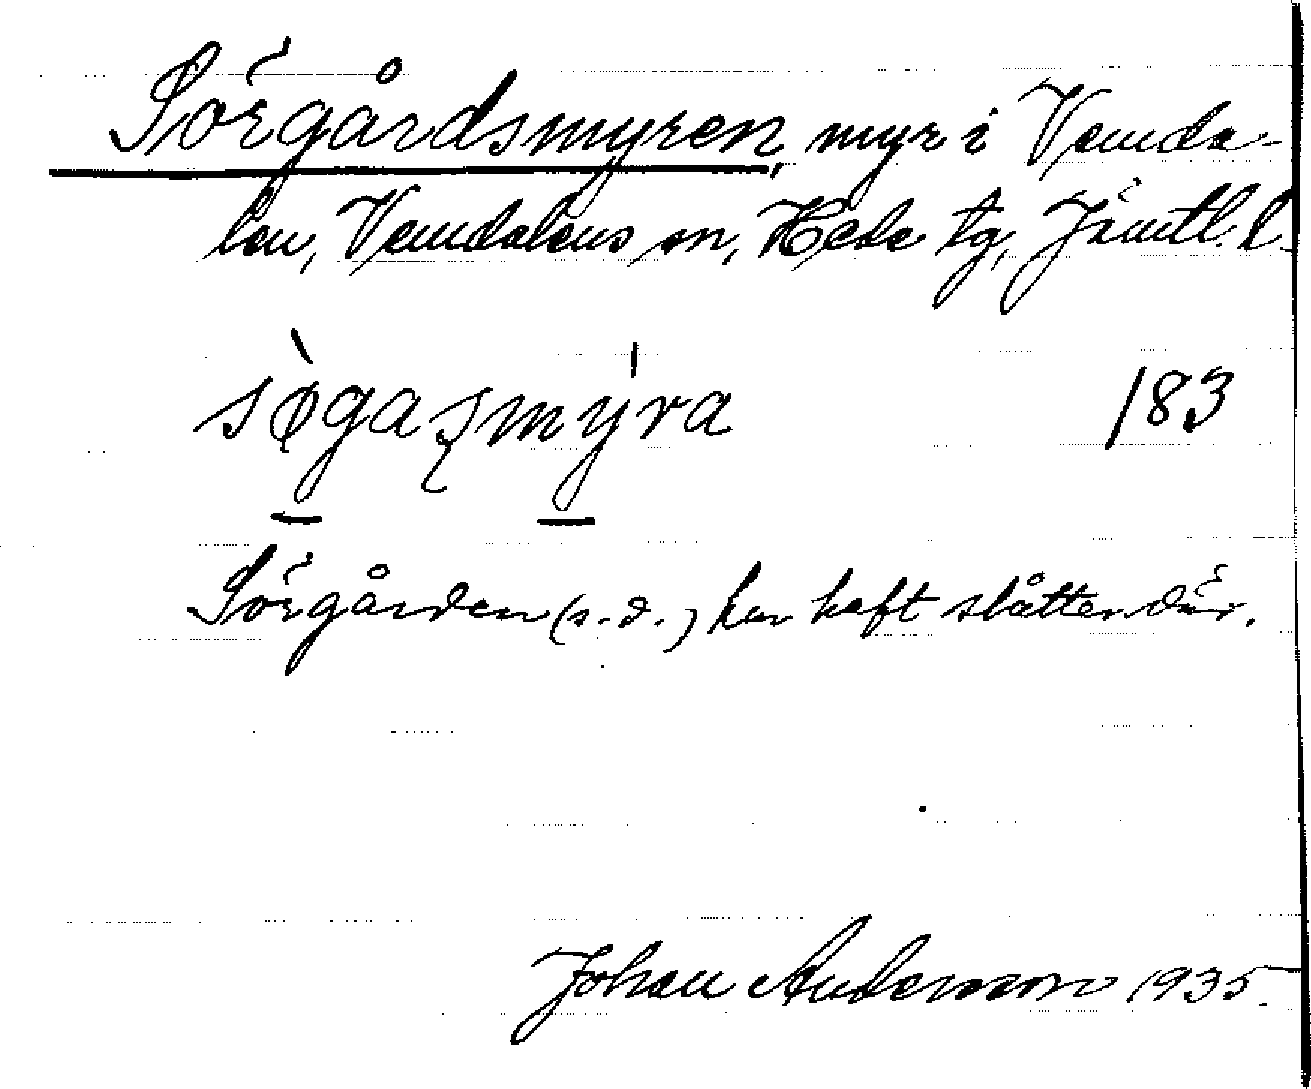 Sörgårdsmyren, myr i Vemda-
len, Vemdalens sn, Hede tg, Jämtl. l.
sø̀gaʂmy̍ra 183
Sörgården (s.d.) har haft slåtter där.
Johan Andersson 1935.